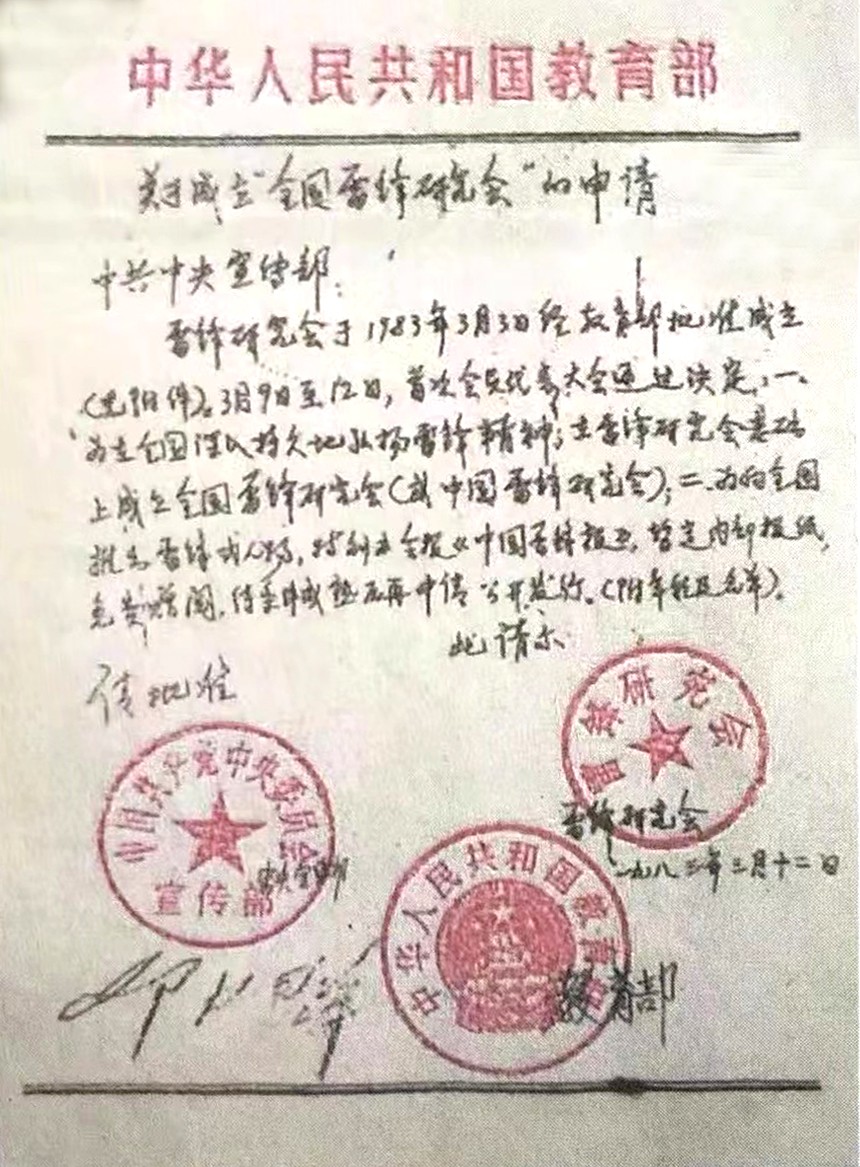 中华人民共和国教育部
关于成立“全国雷锋研究会”的申请
中共中央宣传部：
雷锋研究会于1983年3月3日经教育部批准成立
(见附件)。3月9日至12日，首次会员代表大会通过决定：一、
为在全国深入持久地弘扬雷锋精神；在雷锋研究会基础
上成立全国雷锋研究会(或中国雷锋研究会)；二、为向全国
推出雷锋式人物，特创办会报《中国雷锋报》，暂定内部报纸，
免费赠阅，待条件成熟后再申请公开发行。(附章程及名单)。
此请示
请批准
雷锋研究会
中国共产党中央委员会
宣传部
雷锋研究会
一九八三年三月十二日
中华人民共和国教育部
教育部